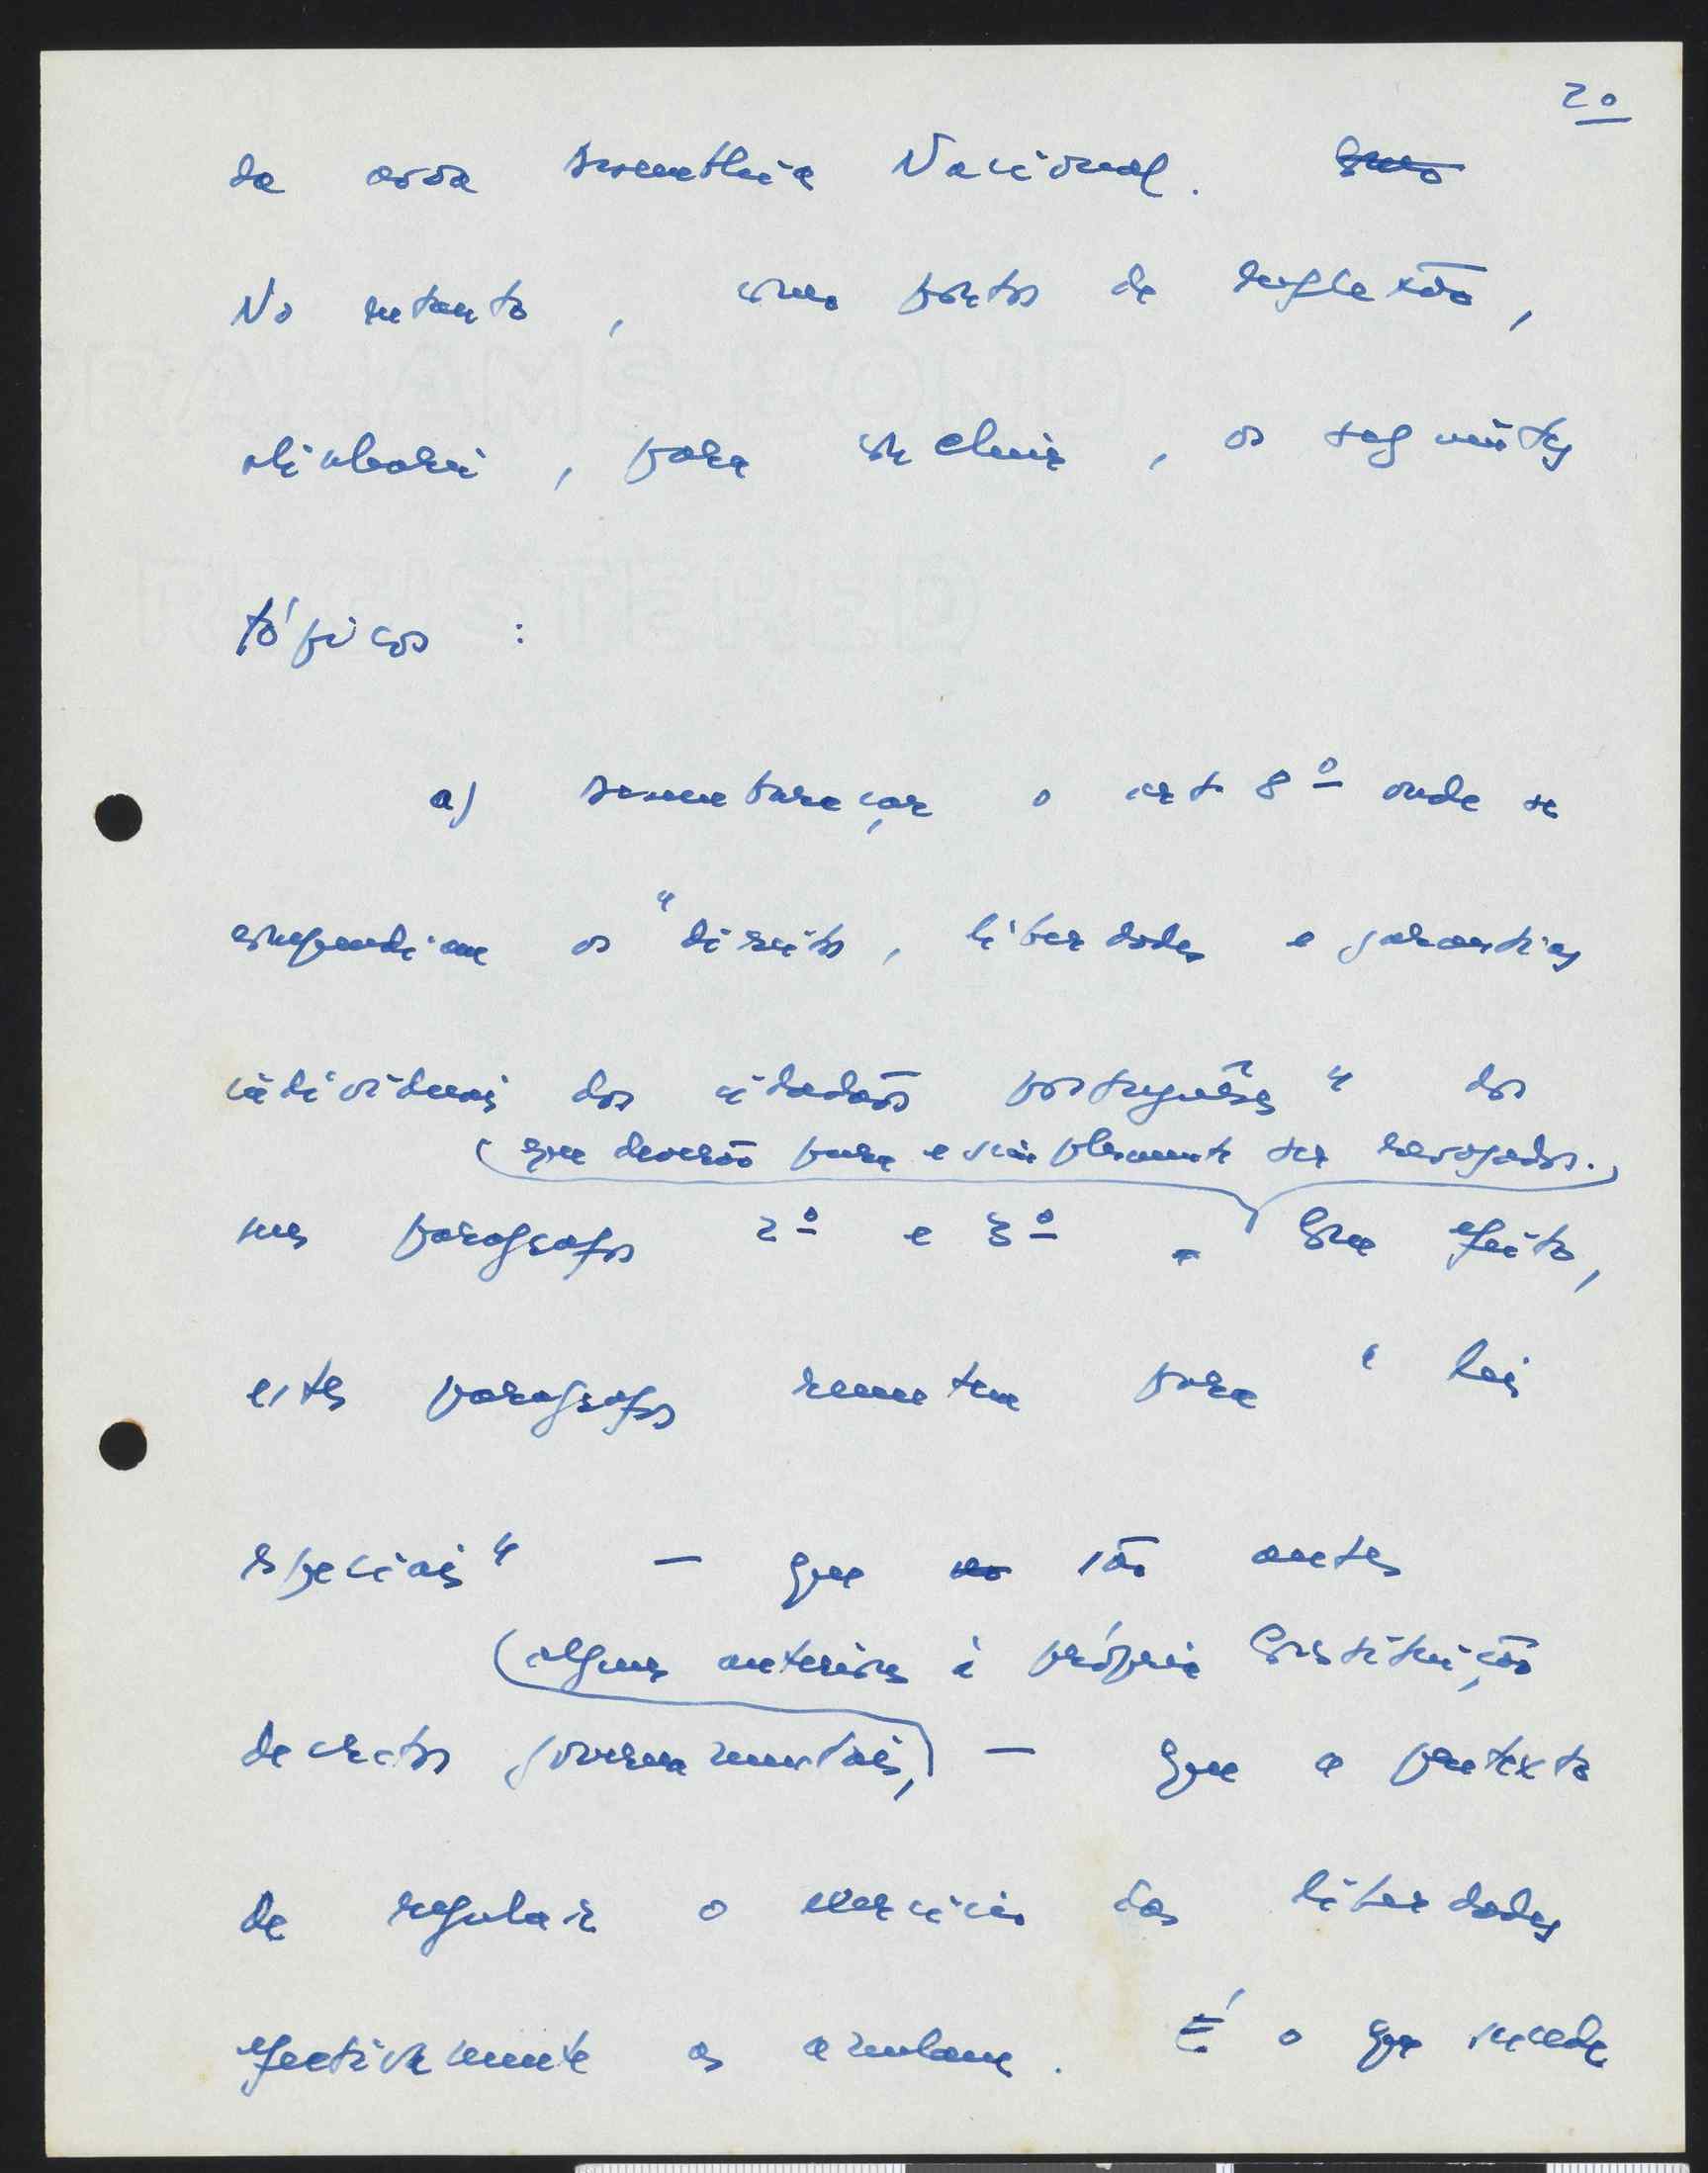 20
da nova Assembleia Nacional.
No entanto, como pontos de reflexão,
alinharei, para concluir, os seguintes
tópicos :
a) desembaraçar o art 8º onde se
compendiam os "direitos, liberdades e garantias
individuais dos cidadãos portugueses" dos
(que deverão pura e simplesmente ser revogados.)
seus paragrafos 2º e 3º. Com efeito,
estes paragrafos remetem para "leis
especiais" — que são antes
(alguns anteriores à própria Constituição
decretos governamentais,) — que a pretexto
de regular o exercicio das liberdades
efectivamente as anulam. É o que sucede